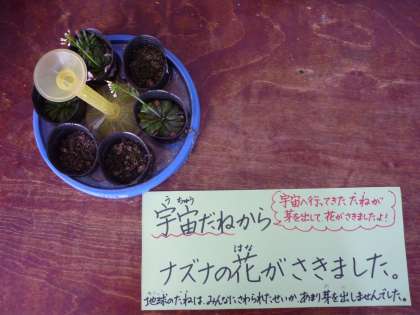 うちゅう
宇宙だねから
宇宙へ行ってきた、たねが
芽を出して 花がさきましたよ!
はな
ナズナの花がさきました。
地球のたねは、みんなにさわられたせいか、あまり芽を出しませんでした。